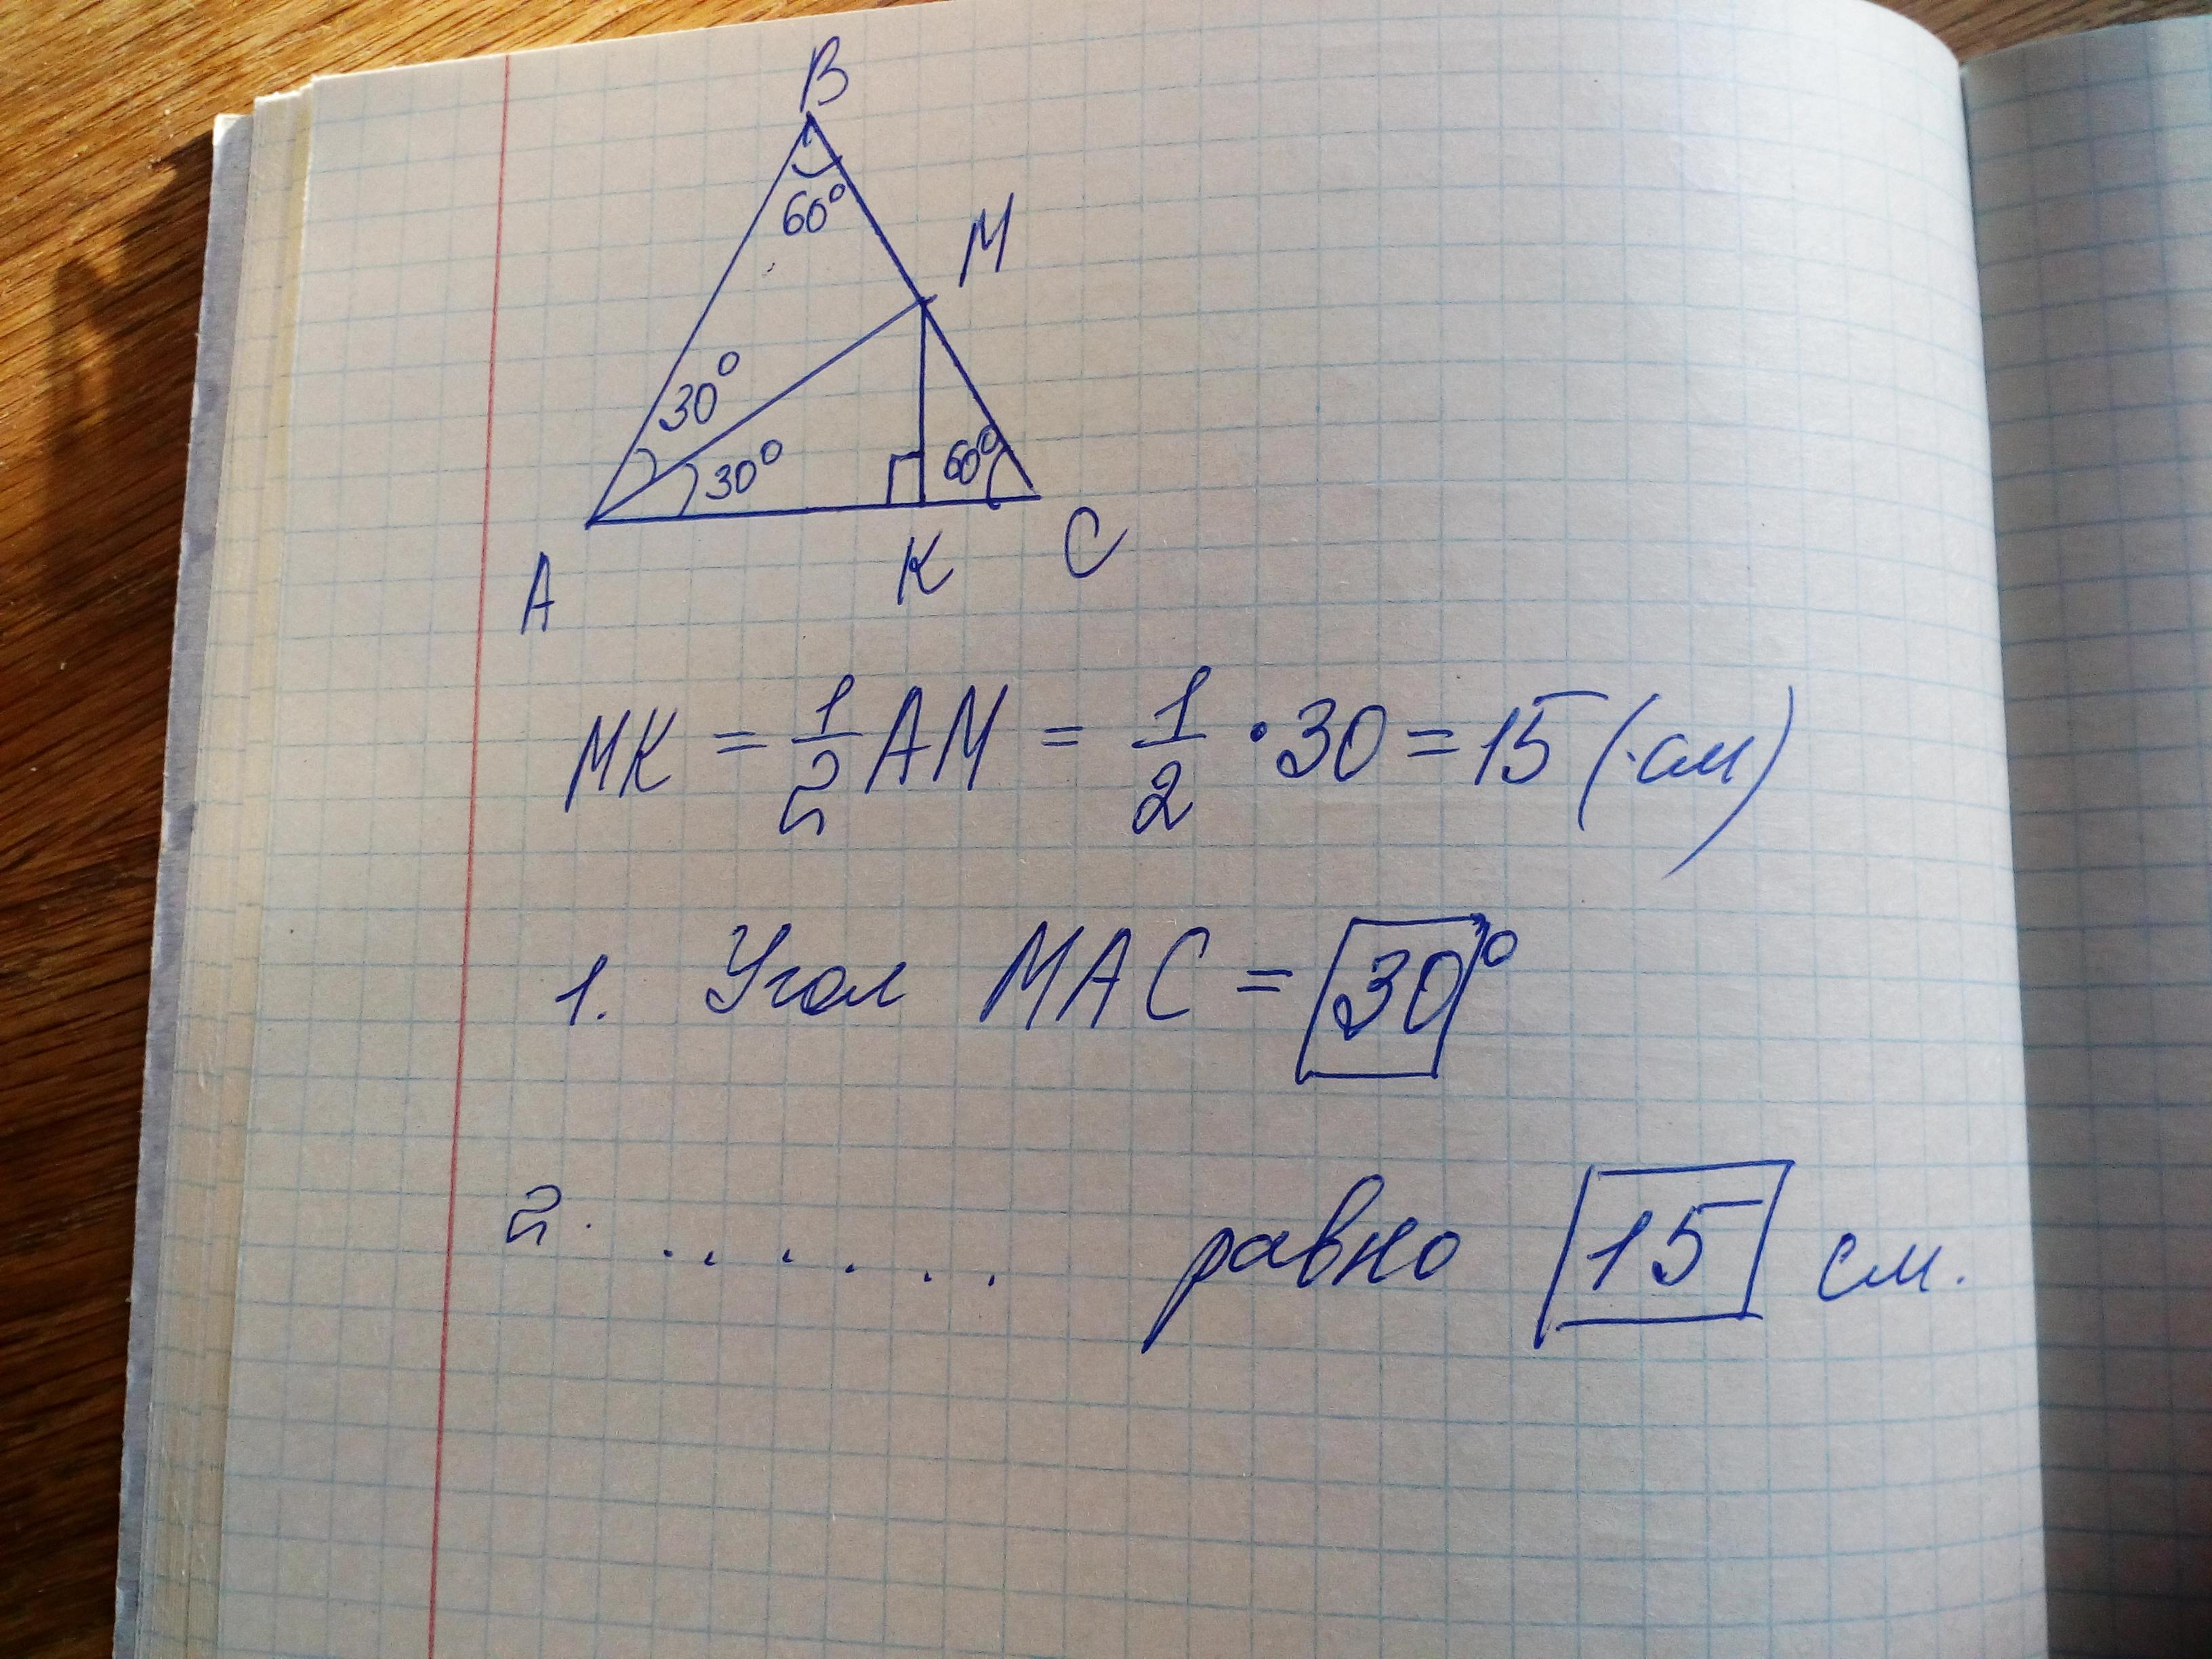 B
60°
M
30°
30°
60°
A
K
C
MK = 1/2 AM = 1/2 · 30 = 15 (см)
1. Угол MAC = 30°
2. ...... равно 15 см.